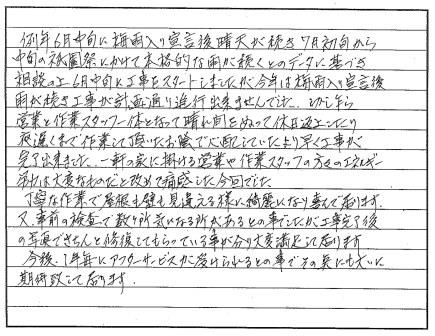 例年6月中旬に梅雨入り宣言後晴天が続き7月初旬から
中旬の祇園祭にかけて本格的な雨が続くとのデータに基づき
相談の上6月中旬に工事をスタートしましたが今年は梅雨入り宣言後
雨が続き工事が計画通り進行出来ませんでした。しかしながら
営業と作業スタッフ一体となって晴れ間をぬって休日返上したり
夜遅くまで作業して頂いたお陰で心配していたより早く工事が
完了出来ました。一軒の家に掛ける営業や作業スタッフの方々のエネルギー
は大変なものだと改めて痛感した今回でした。
丁寧な作業で屋根も壁も見違える様に綺麗になり喜んで居ります。
又、事前の検査で数ヶ所気になる所があるとの事でしたが工事完了後
の写真できちんと修復してもらっている事が分り大変満足して居ります
今後、1年毎にアフターサービスが受けられるとの事でその点にも大いに
期待致して居ります。